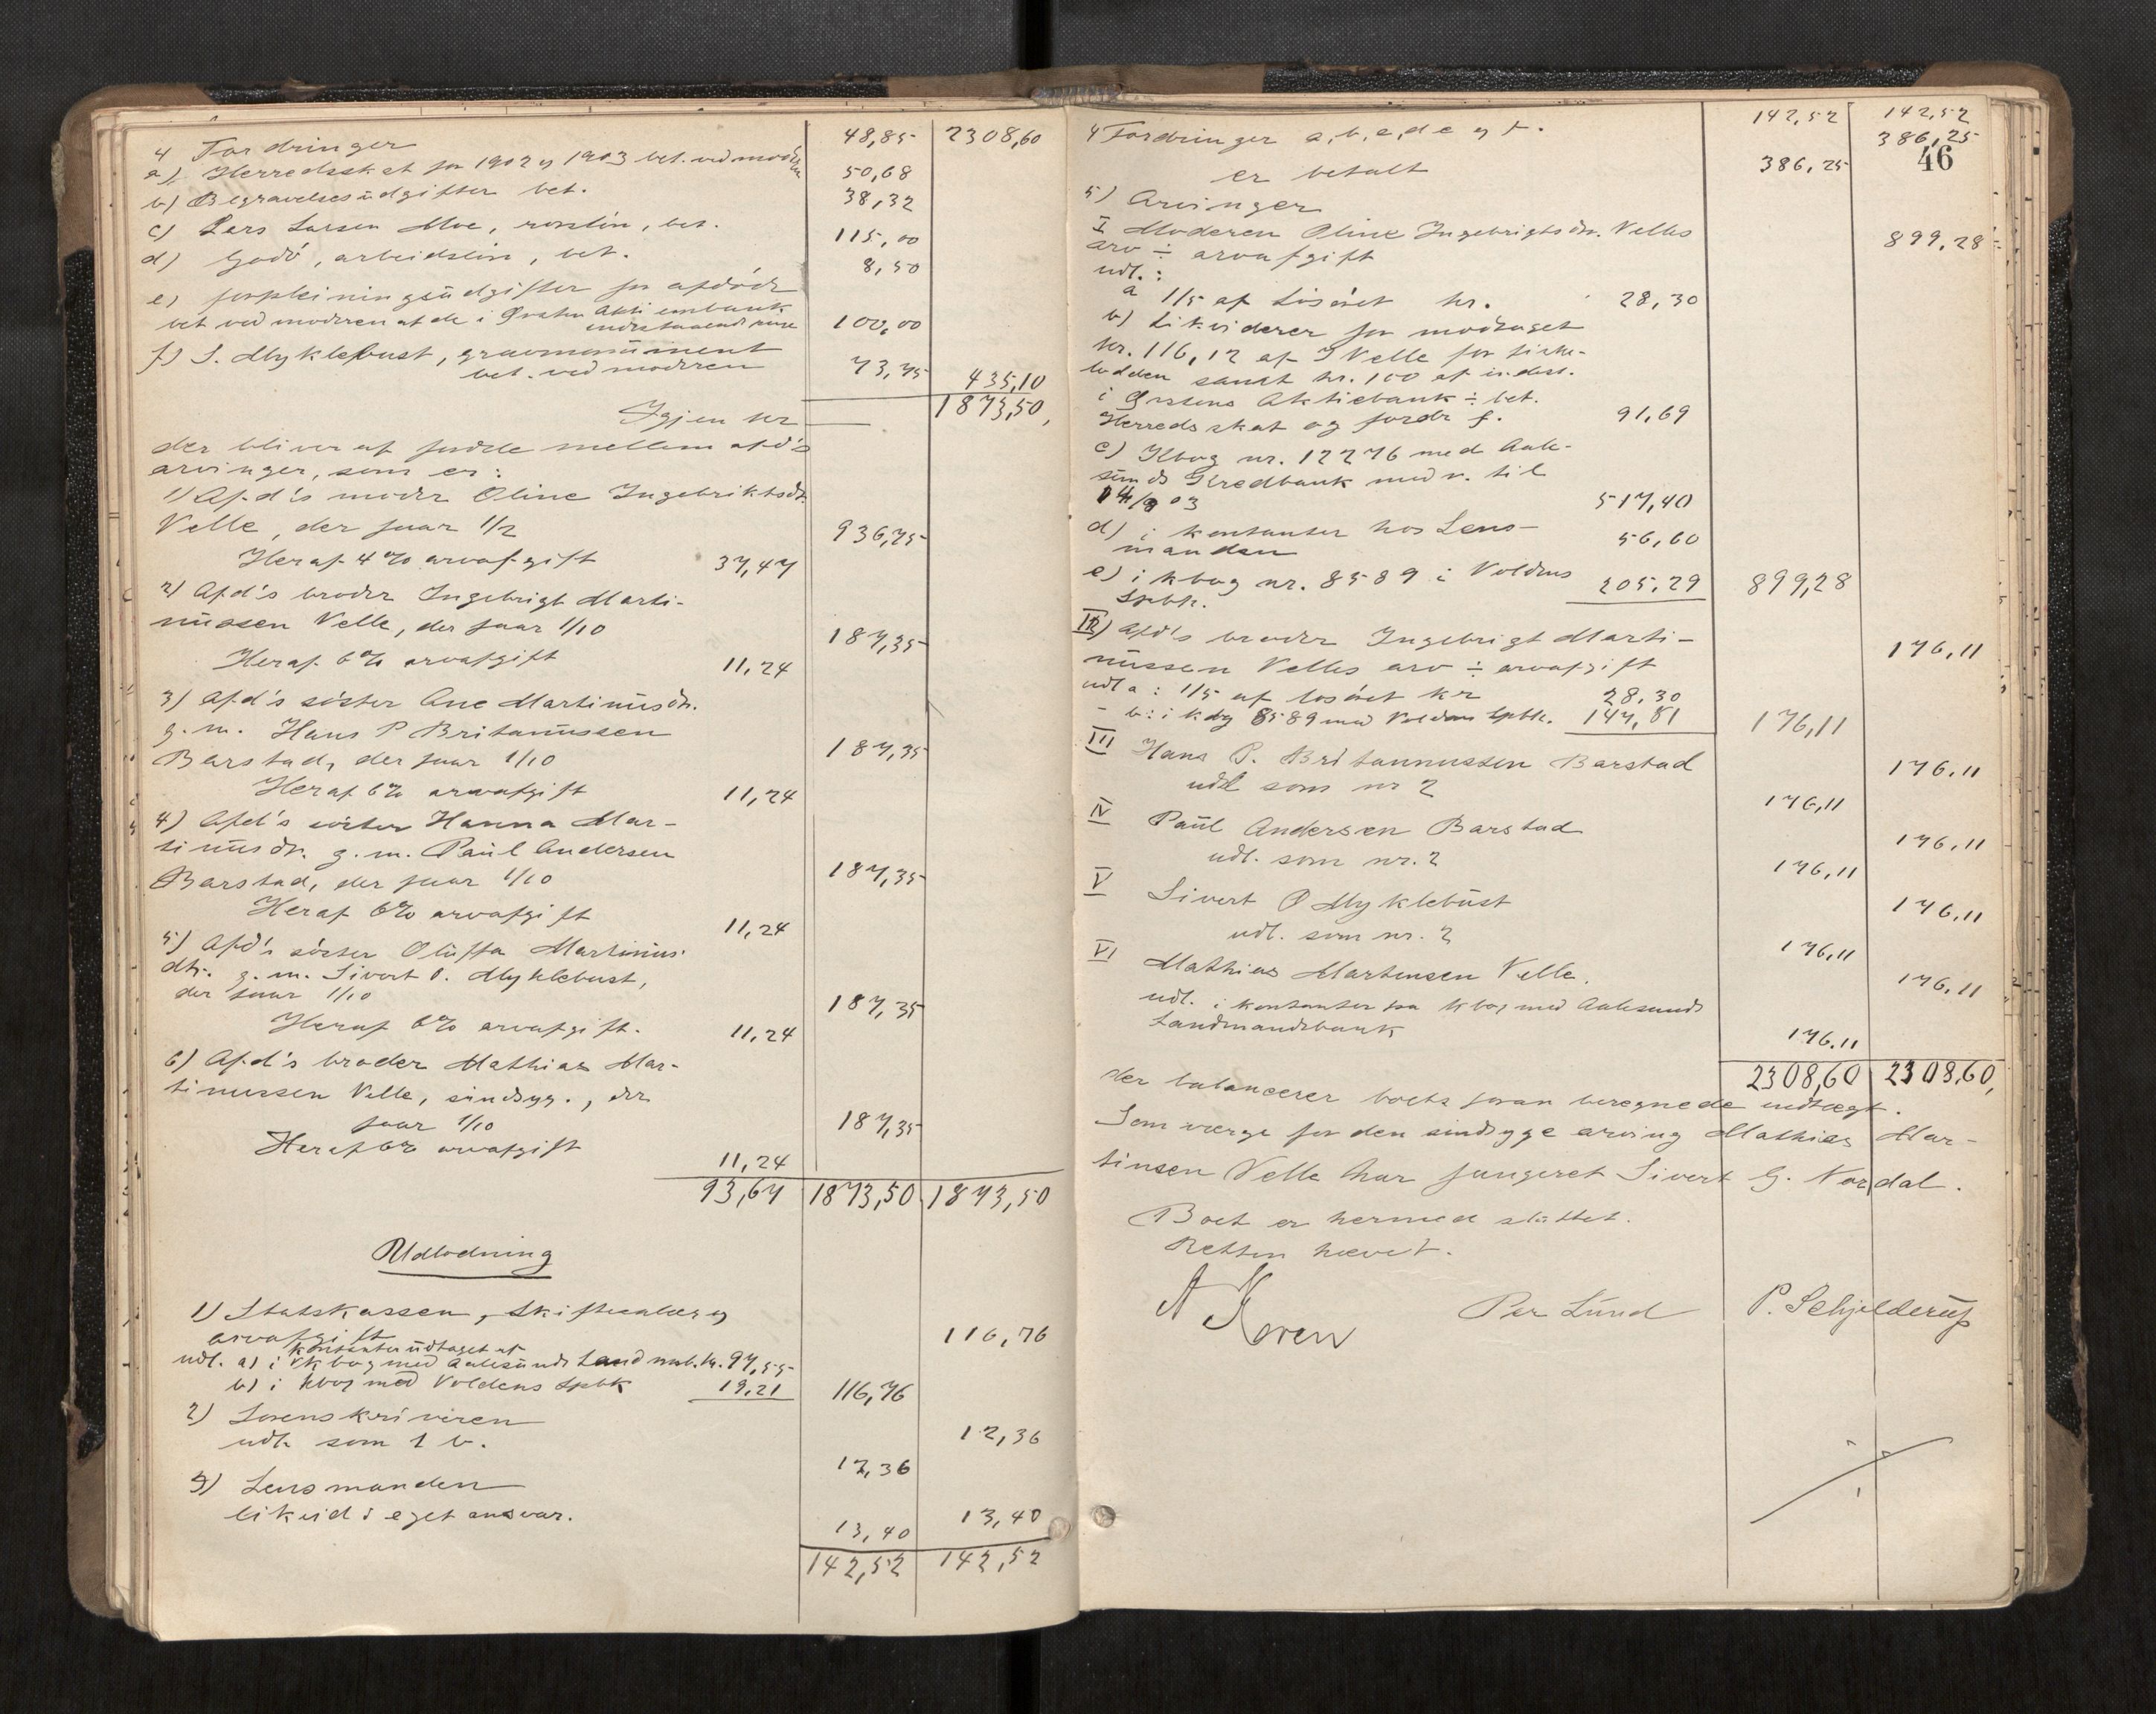 48,85 2308,60
4 Fordringer
a) Herredsskat for 1902 og 1903 bet. ved moderen 50,68
b) Begravelsesudgifter bet. 38,32
c) Lars Larsen Moe, rorslön, bet. 115,00
d) Godö, arbeidslön, bet. 8,50
e) forpleiningsudgifter for afdöde
bet ved moderen af de i Örsten Aktiembank
indestaaende penge 100,00
f) S. Myklebust, gravmonument
bet. ved moderen 73,75 435,10
Igjen kr 1873,50,
der bliver at fordele mellem afd's
arvinger, som er:
1) Afd's moder Oline Ingebriktsdr.
Velle, der faar 1/2 936,75
Heraf 4% arvafgift 37,47
2) Afd's broder Ingebrigt Marti-
nussen Velle, der faar 1/10 187,35
Heraf 6% arvafgift 11,24
3) Afd's söster Ane Martinusdr.
g. m. Hans P Britanussen
Barstad, der faar 1/10 187,35
Heraf 6% arvafgift 11,24
4) Afd's söster Hanna Mar-
tinusdr. g. m. Paul Andersen
Barstad, der faar 1/10 187,35
Heraf 6% arvafgift 11,24
5) Afd's söster Oluffa Martinus-
dtr. g. m. Sivert O. Myklebust,
der faar 1/10 187,35
Heraf 6% arvafgift. 11,24
6) Afd's broder Mathias Mar-
tinussen Velle, sindsyg., der
faar 1/10 187,35
Heraf 6% arvafgift 11,24
93,67 1873,50 1873,50
Udlodning
1) Statskassen, skiftesalær og
arvafgift 116,76
kontanter udtaget af
udl. a) i kbog med Aalesunds Landmb. kr. 97,55
b) i kbog med Voldens Spbk 19,21 116,76
2) Sorenskriveren 12,36
udl. som 1 b. 12,36
3) Lensmanden 13,40
likvid i eget ansvar. 13,40
142,52 142,52
142,52 142,52
4 Fordringer a, b, c, d e og f. 386,25
46
er betalt 386,25
5) Arvinger
I Moderen Oline Ingebrigtsdr. Velles
arv ÷ arvafgift 899,28
udl.:
a 1/5 af Lösöret kr. 28,30
b) Likviderer for modtaget
kr. 116,12 af I Velle for fiske-
lodden samt kr. 100 af indest.
i Örstens Aktiebank ÷ bet.
Herredsskat og fordr f. 91,69
c) Kbog nr. 12276 med Aale-
sunds Kredbank med r. til
14/9 03 517,40
d) i kontanter hos Lens-
manden 56,60
e) i kbog nr. 8589 i Voldens
Spbk. 205,29 899,28
II) Afd's broder Ingebrigt Marti-
nussen Velles arv ÷ arvafgift 176,11
udl a: 1/5 af losöret kr 28,30
- b: i kbg 8589 med Voldens Spbk. 147,81 176,11
III Hans P. Britannussen Barstad 176.11
udl som nr 2 176,11
IV Paul Andersen Barstad 176,11
udl. som nr. 2 176,11
V Sivert O Myklebust 176,11
udl. som nr. 2 176,11
VI Mathias Martensen Velle. 176,11
udl. i kontanter fra kbog med Aalesunds
Landmandsbank 176.11
2308,60 2308,60,
der balancerer boets foran beregnede indtægt.
Som værge for den sindsyge arving Mathias Mar-
tinsen Velle har fungeret Sivert G. Nordal.
Boet er hermed sluttet.
Retten hævet.
A Koren Per Lund P. Schjelderup